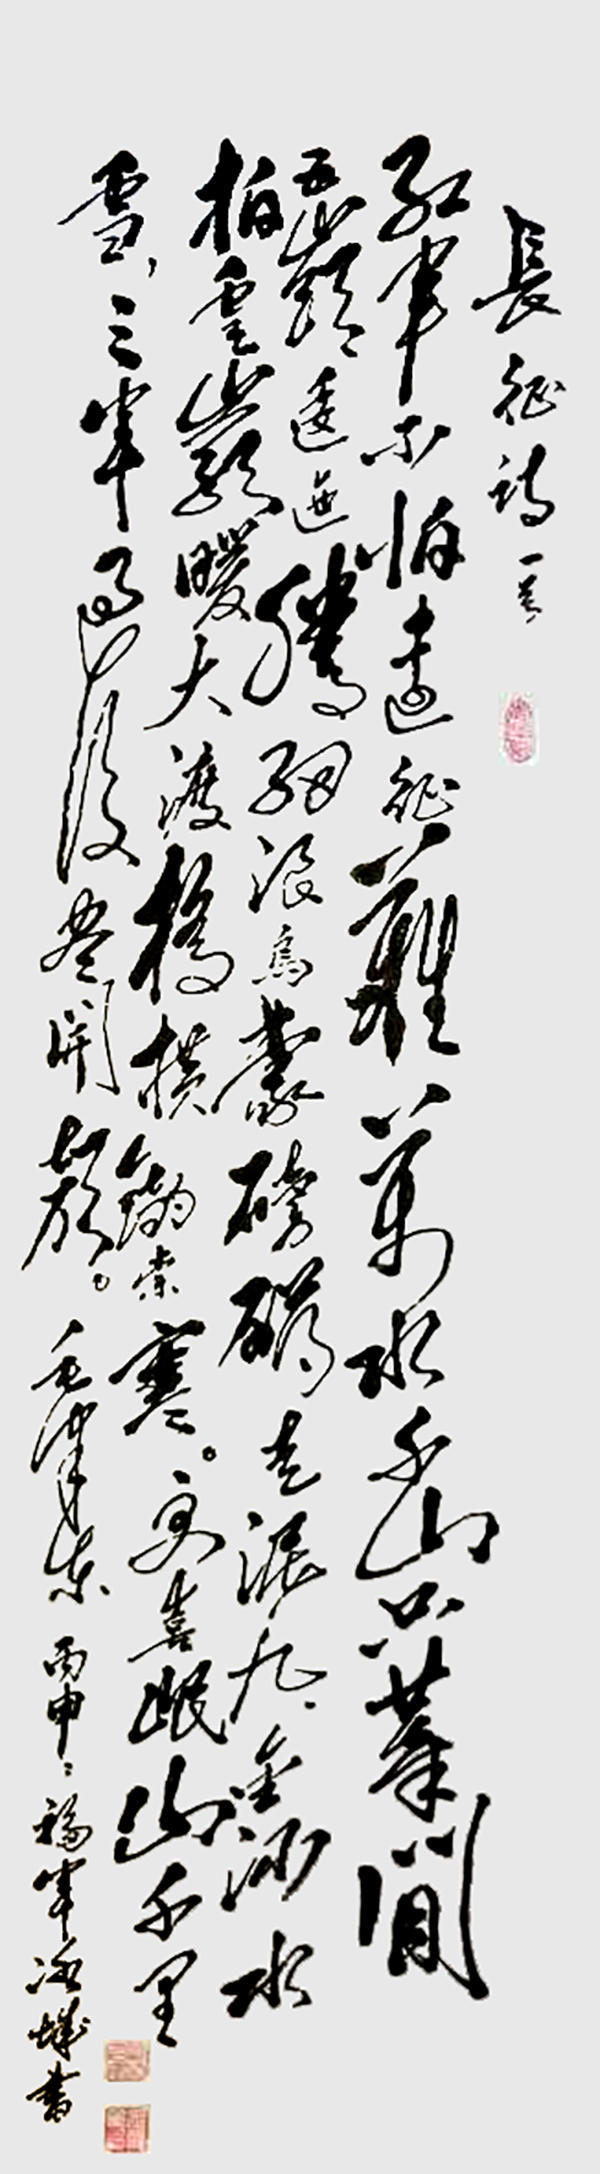 長征詩一首
紅軍不怕遠征難萬水千山只等閒
五嶺逶迤騰細浪烏蒙磅礴走泥丸金沙水
拍雲巖暖大渡橋橫鐵索寒。更喜岷山千里
雪,三軍過後盡開顏。毛澤東 丙申 福軍冰城書